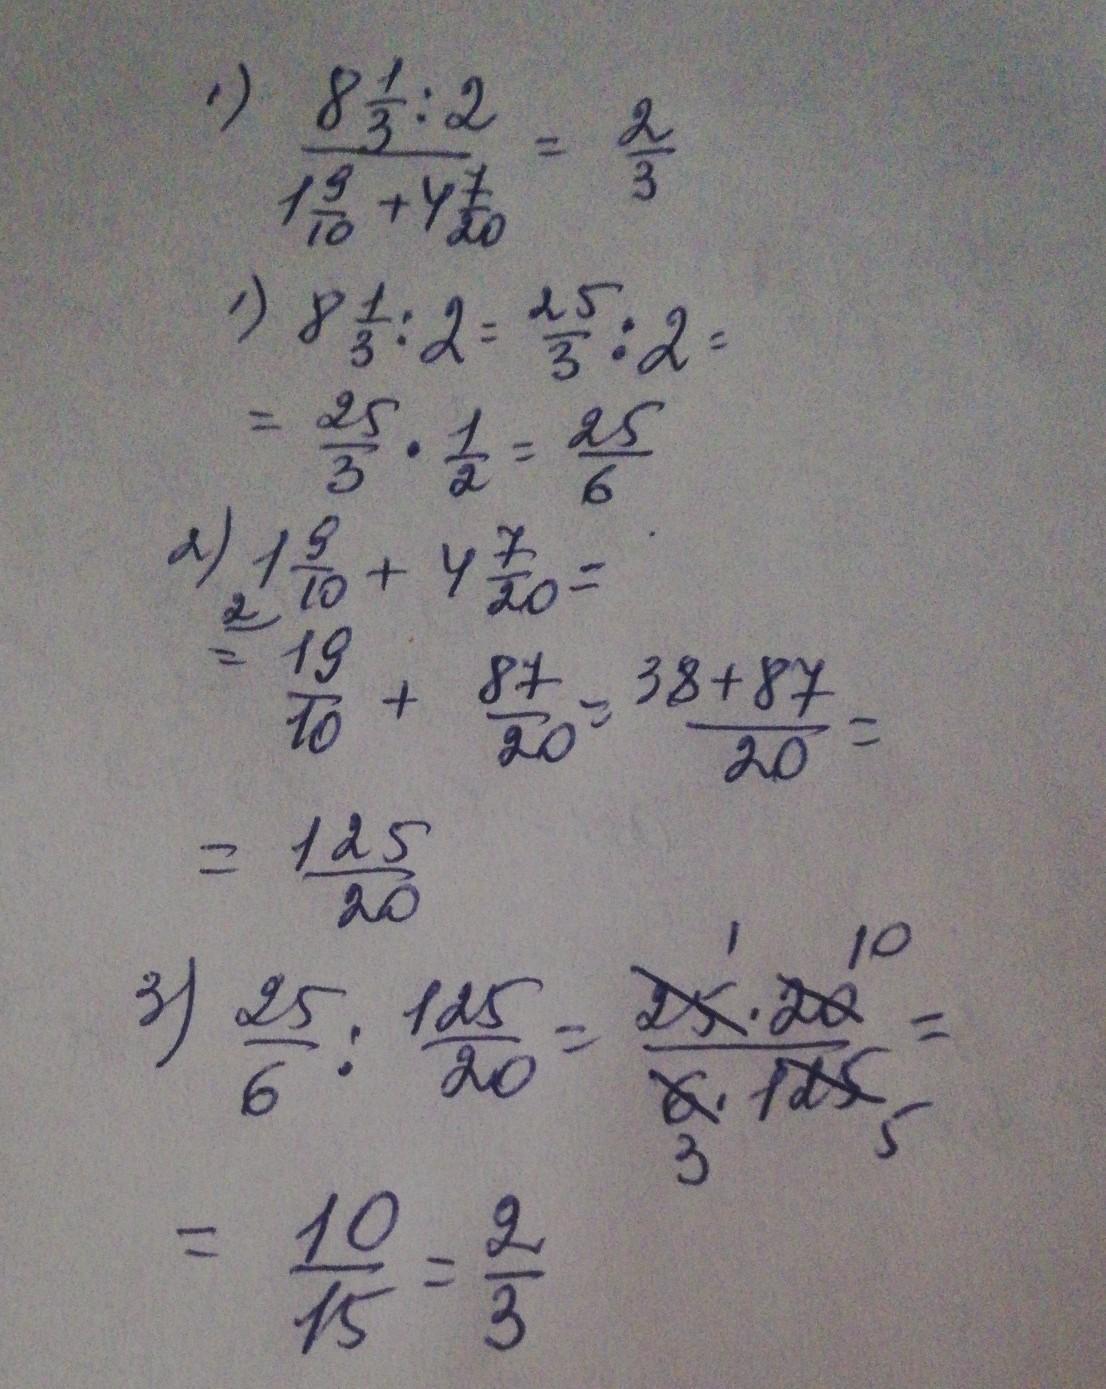 1) (8 1/3 : 2)/(1 9/10 + 4 7/20) = 2/3
1) 8 1/3 : 2 = 25/3 : 2 =
= 25/3 · 1/2 = 25/6
2) 1 9/10 + 4 7/20 =
= 2 19/10 + 87/20 = (38+87)/20 =
= 125/20
3) 25/6 : 125/20 = (25 1 · 20 10)/(6 3 · 125 5) =
= 10/15 = 2/3